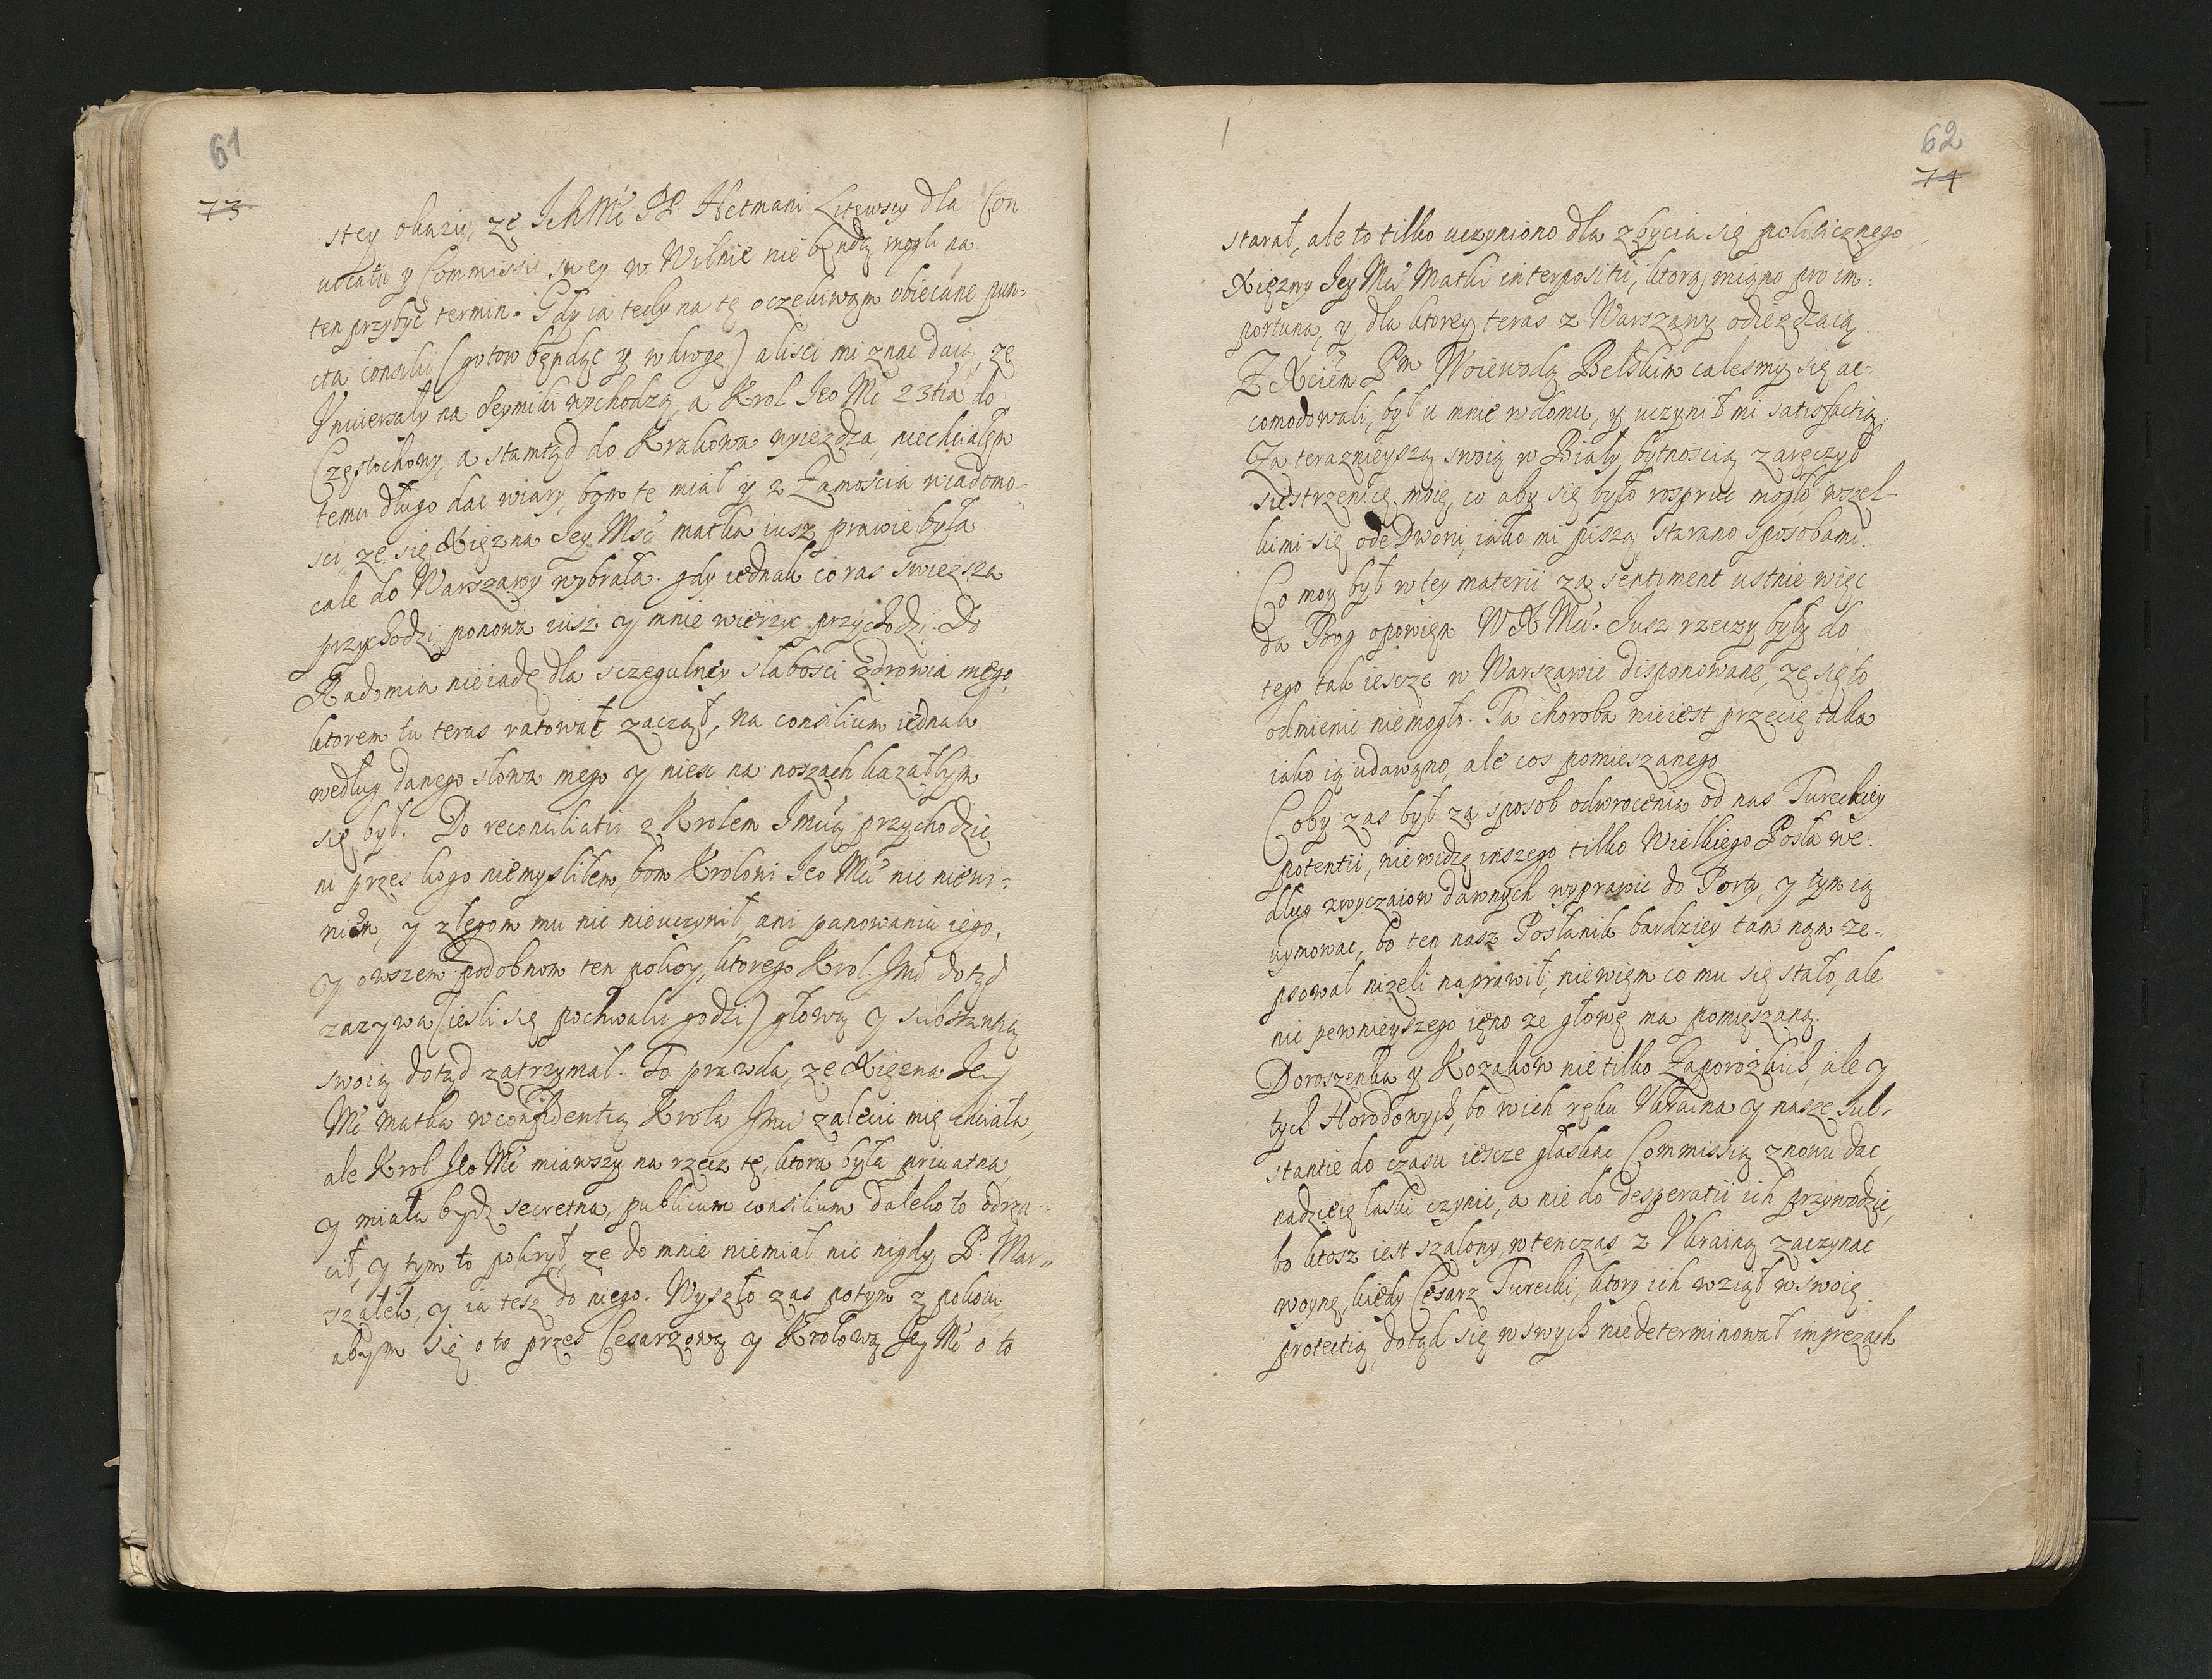 61
73
stey okaziy, ze IchMć PP. Hetmani Litewscy dla Con
uocatii y Commissii swey w Wilnie nie będą mogli na
ten przybyć termin. Gdy ia tedy na tę oczekiwam obiecane pun-
cta consilii (gotow będąc y w drogę) alisci mi znac daią, ze
Vniwersały na Seymiki wychodzą, a Krol Jeo Mć 23tia do
Częstochowy, a stamtąd do Krakowa wyiezdza, niechciałem
temu długo dac wiary, bom te miał y z Zamoscia wiadomo-
sci, ze się Xiężna Jey Msć matka iusz prawie była
cale do Warszawy wybrała. gdy iednak coras swiezsza
przychodzi ponowa iusz y mnie wierzyc przychodzi. Do
Radomia nieiadę dla sczegulney słabosci zdrowia mego,
ktorem tu teras ratować zaczął, na consilium iednak
według danego słowa mego y niesc na noszach kazałbym
się był. Do reconciliatii z Krolem Jmcią przychodzic
ni przes kogo niemysliłem, bom Krolowi Jeo Mci nic niewi-
nien, y złegom mu nic nieuczynił, ani panowaniu iego,
y owszem podobnom ten pokoy, ktorego Krol Jmć dotąd
zazywa (iesli się pochwalic godzi) głową y substantią
swoią dotąd zatrzymał. To prawda, ze Xięzna Jey
Mć matka w confidentią Krola Jmci zalecic mię chciała,
ale Krol Jeo Mć miawszy na rzecz tę, ktora była priuatna,
y miała bydz secretna, publicum consilium daleko to odrzu-
cił, y tym to pokrył, ze do mnie niemiał nic nigdy P. Mar-
szałek, y ia tesz do niego. Wyszło zas potym z pokoiu,
abym się o to przes Cesarzową y Krolową Jey Mć o to
62
74
starał, ale to tilko uczyniono dla zbycia się politicznego
Xięzny Jey Mci Matki interpositii, ktorą miano pro im-
portuna, y dla ktorey teras z Warszawy odiezdzaią
Z Xciem Pm Woiewodą Bełskim calesmy się ac-
comodowali, był u mnie w domu, y uczynił mi satisfactią.
Za teraznieyszą swoią w Biały bytnoscią zaręczył
siestrzenicę moię, co aby się było rospruc mogło wszel-
kimi się ode Dworu, iako mi piszą, starano sposobami.
Co moy był w tey materii za sentiment ustnie więc
da Bog opowiem WXMci. Iusz rzeczy były do
tego tak iescze w Warszawie disponowane, ze się to
odmienic niemogło. Ta choroba nieiest przecię taka
iako ią udawano, ale cos pomieszanego
Coby zas był za sposob odwrocenia od nas Tureckiey
potentii, niewidzę inszego tilko Wielkiego Posła we-
dług zwyczaiow dawnych wyprawic do Porty, y tym ią
uymowac, bo ten nasz Posłanik bardziey tam nam ze-
psował nizeli naprawił, niewiem co mu się stało, ale
nic pewnieyszego ieno ze głowę ma pomieszaną.
Doroszenka y Kozakow nie tilko Zaporozkich, ale y
tych Horodowych, bo w ich ręku Vkraina y nasze sub-
stantie do czasu iescze głaskac Commissią znowu dac,
nadzieię łaski czynic, a nie do desperatii ich przywodzic,
bo ktosz iest szalony, wtenczas z Vkrainą zaczynac
woynę, kiedy Cesarz Turecki, ktory ich wziął w swoię
protectią, dotąd się w swych niedeterminował imprezach